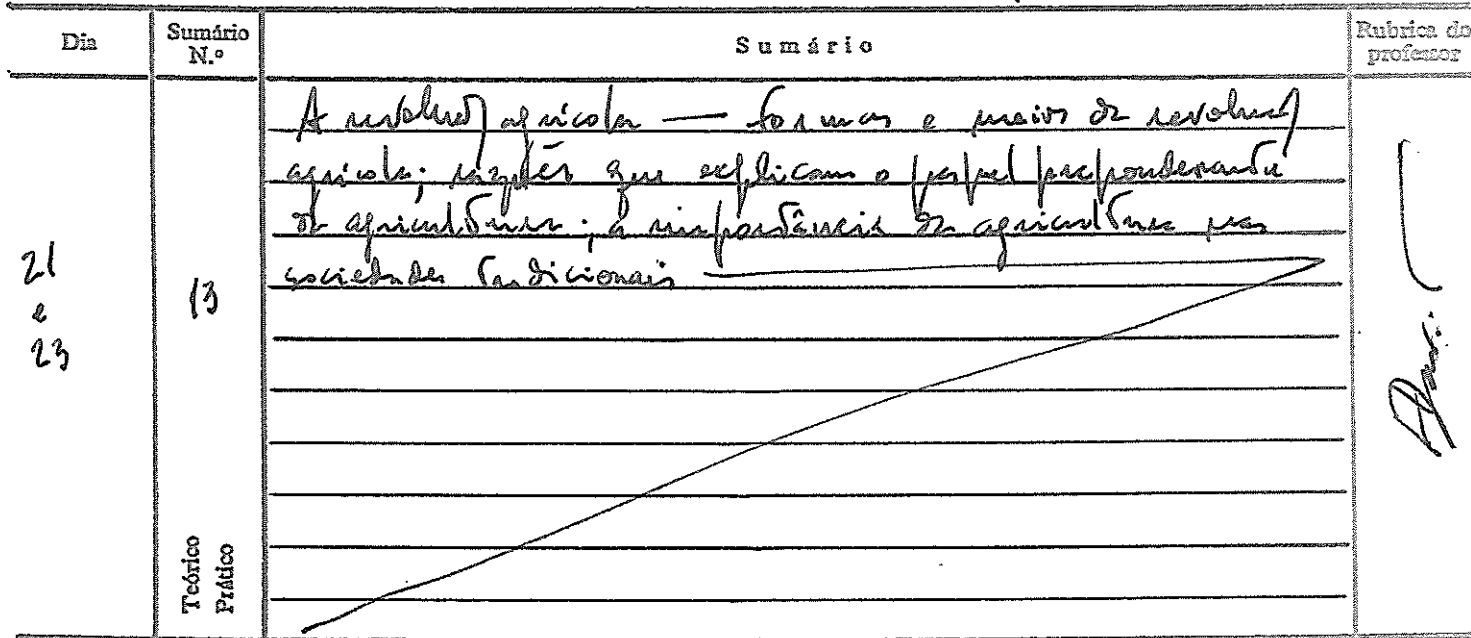 Dia
Sumário N.º
Sumário
Rubrica do professor
21 e 23
13
A revolução agrícola — formas e meios da revolução
agrícola; razões que explicam o papel preponderante
da agricultura; a importância da agricultura nas
sociedades tradicionais
Teórico
Prático